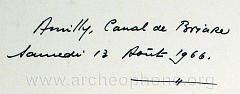 Amilly, Canal de Briare
Samedi 13 Août 1966.
www.archeophone.org